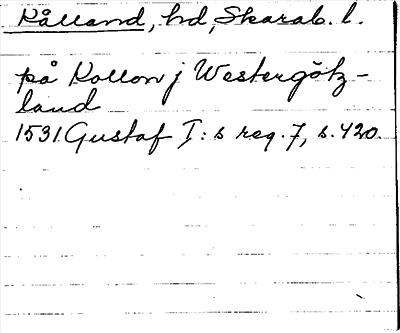 Kålland, hd, Skarab. l.
på Kollon j Westergötz-
land
1531 Gustaf I:s reg. 7, s. 420.